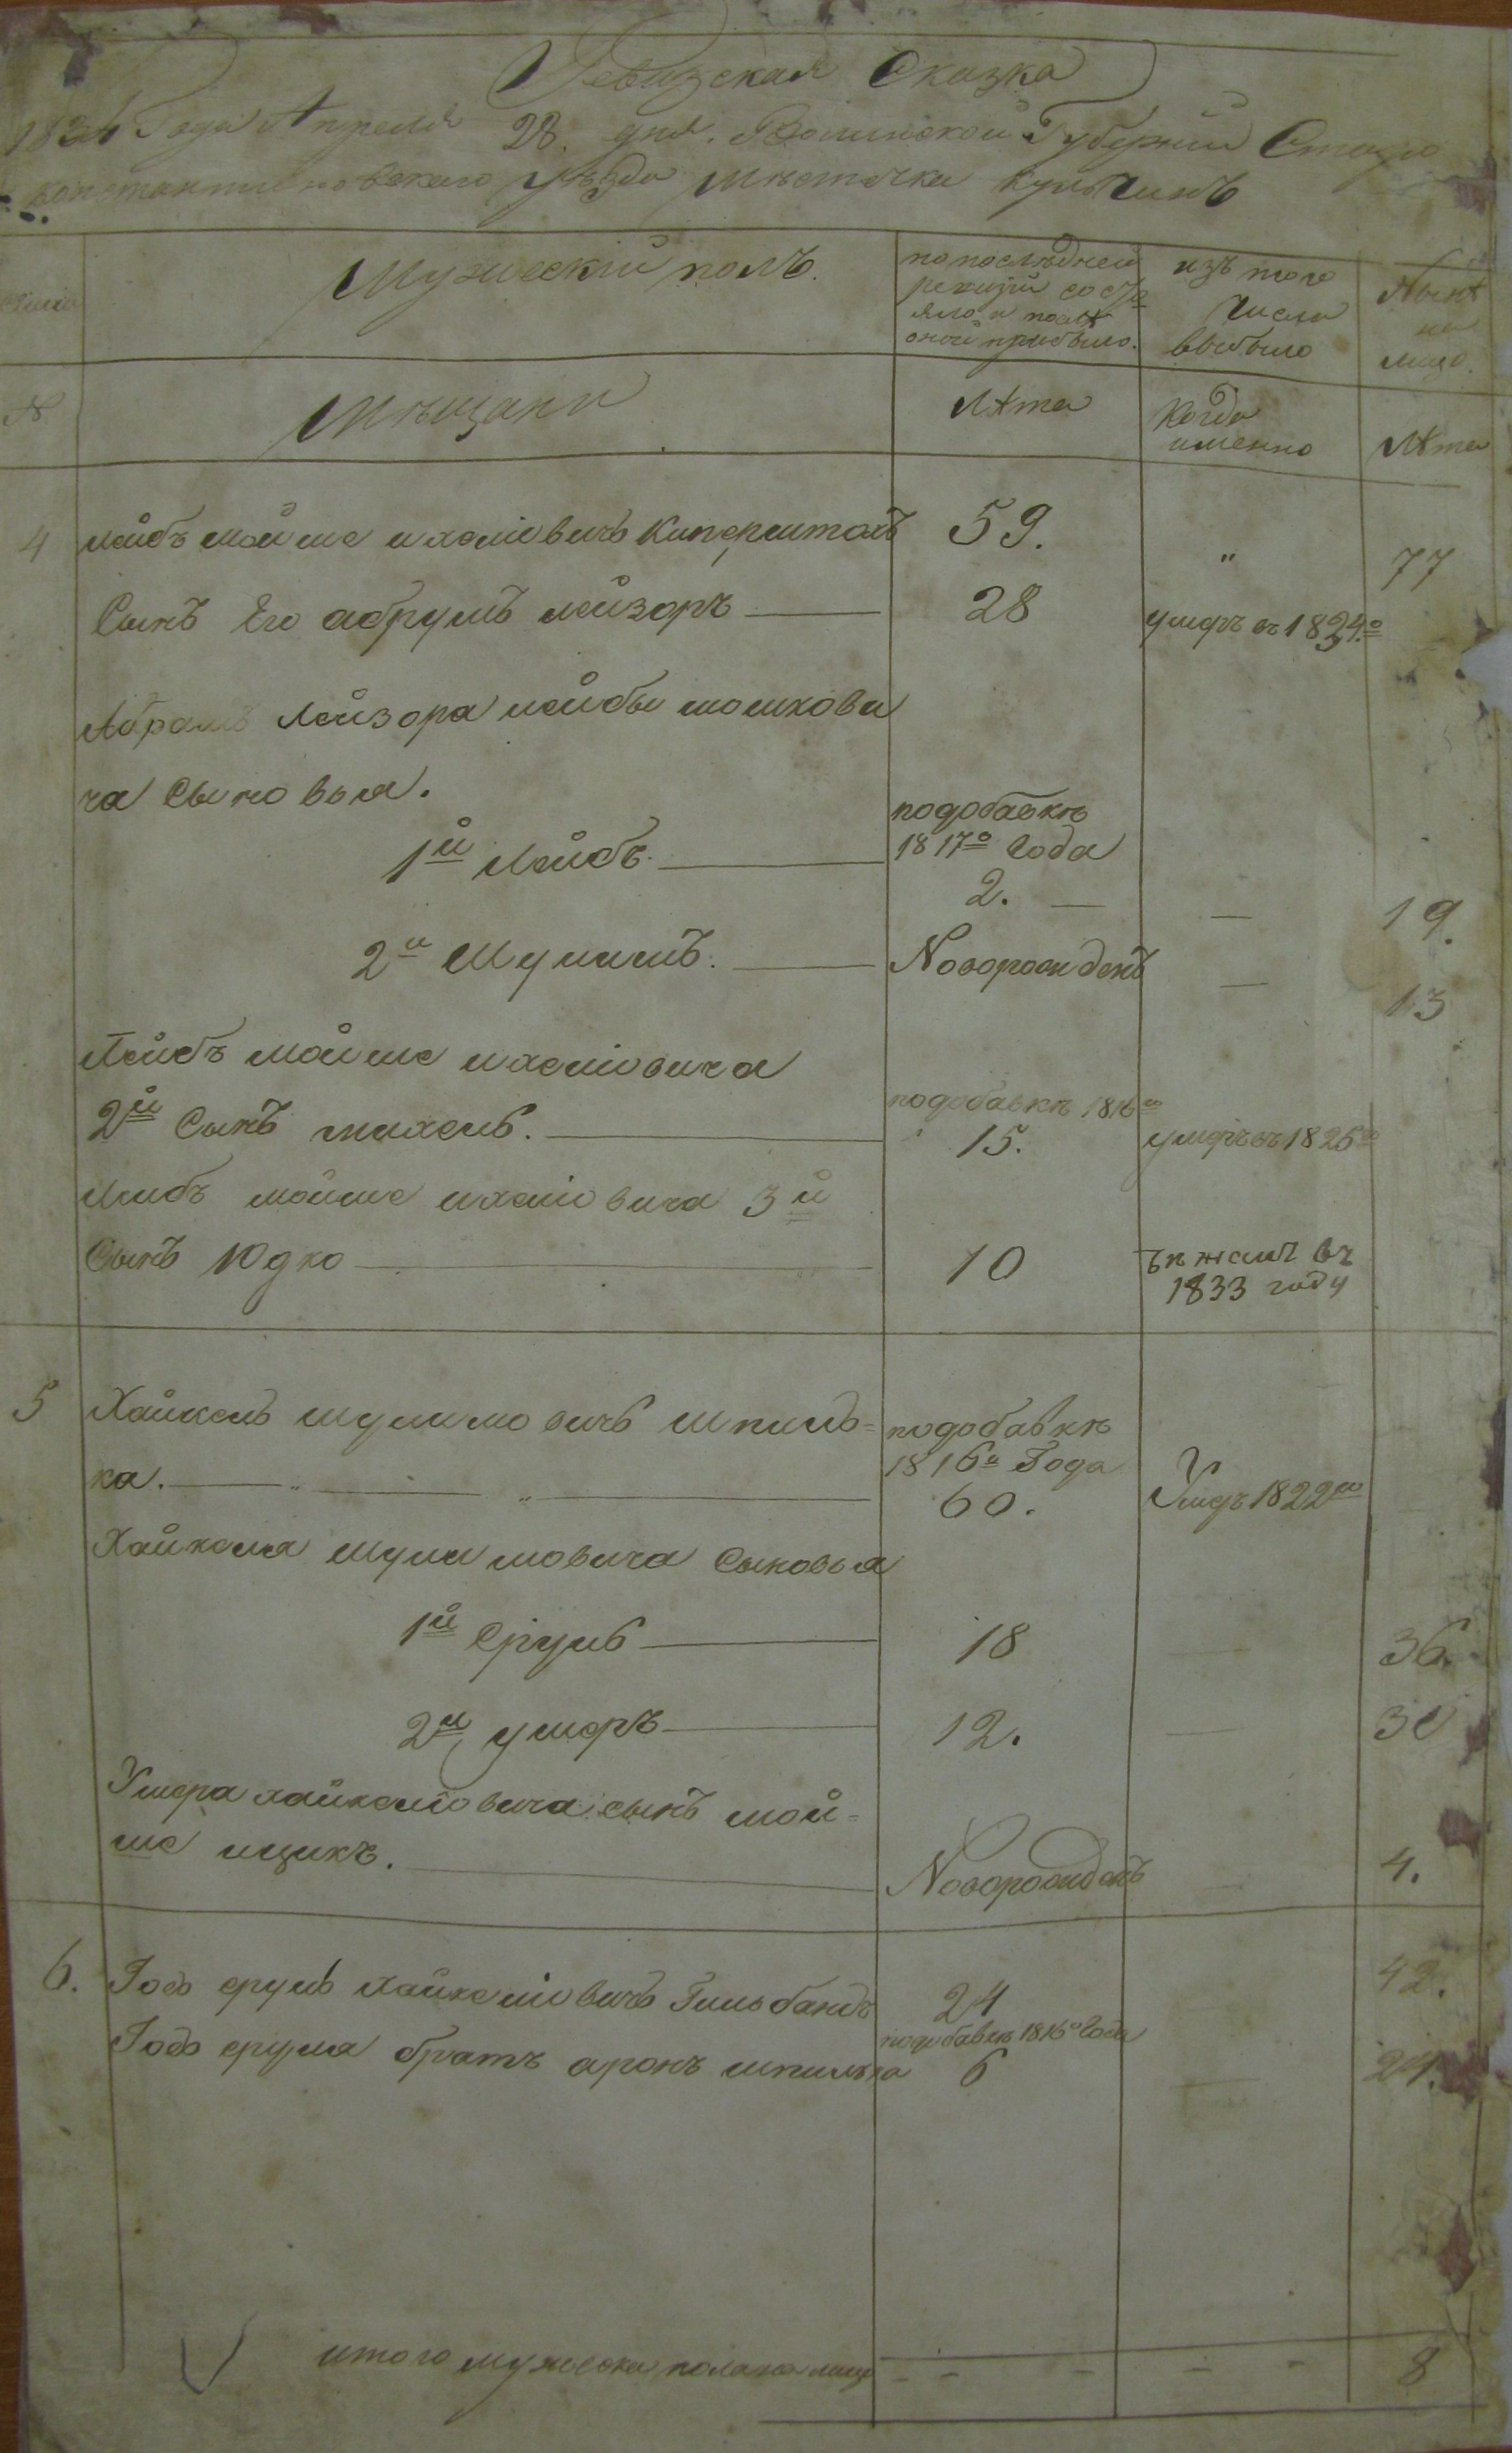 Ревизская Сказка
1834 Года Апреля 28. дня. Волинской Губернии Старо
константиновского уѣзда мѣстечка Кульчинъ
Мужеский полъ.
по послѣдней
ревизии состо
яло и послѣ
оной прибыло.
изъ того
числа
выбыло
Нынѣ
на
лицо.
№
Мѣщани
Лѣта
Когда
именно
Лѣта
4 лейбъ мойше ихелiовичъ Куперштохъ 59. " 77
Сынъ Его абрумъ лейзоръ 28 умеръ въ 1824го
Абрамъ Лейзора лейбы мошкови
ча Сыновья.
1й Лейбъ. подобавкѣ
1817го Года
2. — — 19.
2й Шулимъ. Новорожденъ — 13
Лейбъ мойше ихелiовича
2й Сынъ михель. подобавкѣ 1816го
15. умеръ въ 1825го
Лейбъ мойше ихелiовича 3й
Сынъ Юдко 10 бѣжалъ въ
1833 году
5 Хайкель шулимовичъ шпиль=
ка. подобавкѣ
1816го Года
60. Умеръ 1822го
Хайкеля шулимовича Сыновья
1й Сруль 18 — 36.
2й ушеръ 12. — 30
Ушера хайкелiовича сынъ мой=
ше ицикъ. Новорожденъ 4.
6. Годъ сруль хайкелiовичъ Гильбандъ 24 42.
Годъ сруля братъ аронъ шпилька подобавкѣ 1816го Года
6 24.
итого мужеска пола на лицо 8